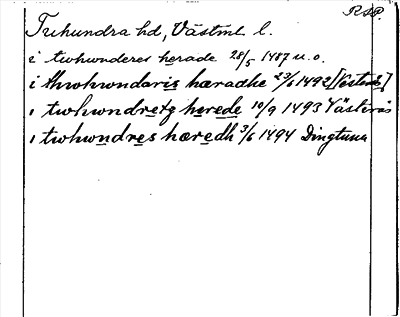 R S P.
Tuhundra hd, Västml. l.
i twhwnderes herade 28/5 1487 u.o.
i thwhwndaris hæradhe 23/6 1492 [Västerås]
i twhwndretz herede 10/9 1493 Västerås
i twhwndres hæredh 3/6 1494 Dingtuna